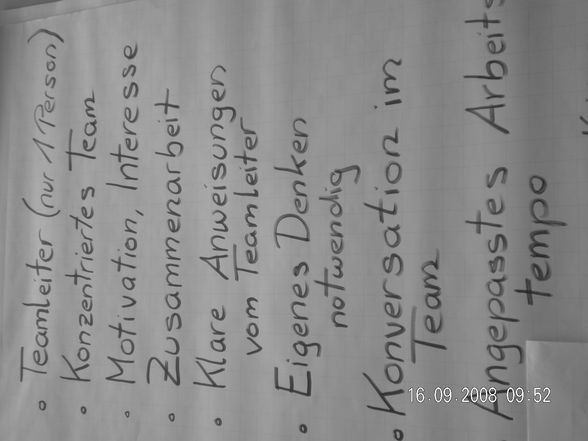 • Teamleiter (nur 1 Person)
• Konzentriertes Team
• Motivation, Interesse
• Zusammenarbeit
• Klare Anweisungen
vom Teamleiter
• Eigenes Denken
notwendig
• Konversation im
Team
Angepasstes Arbeits
tempo
16.09.2008 09:52